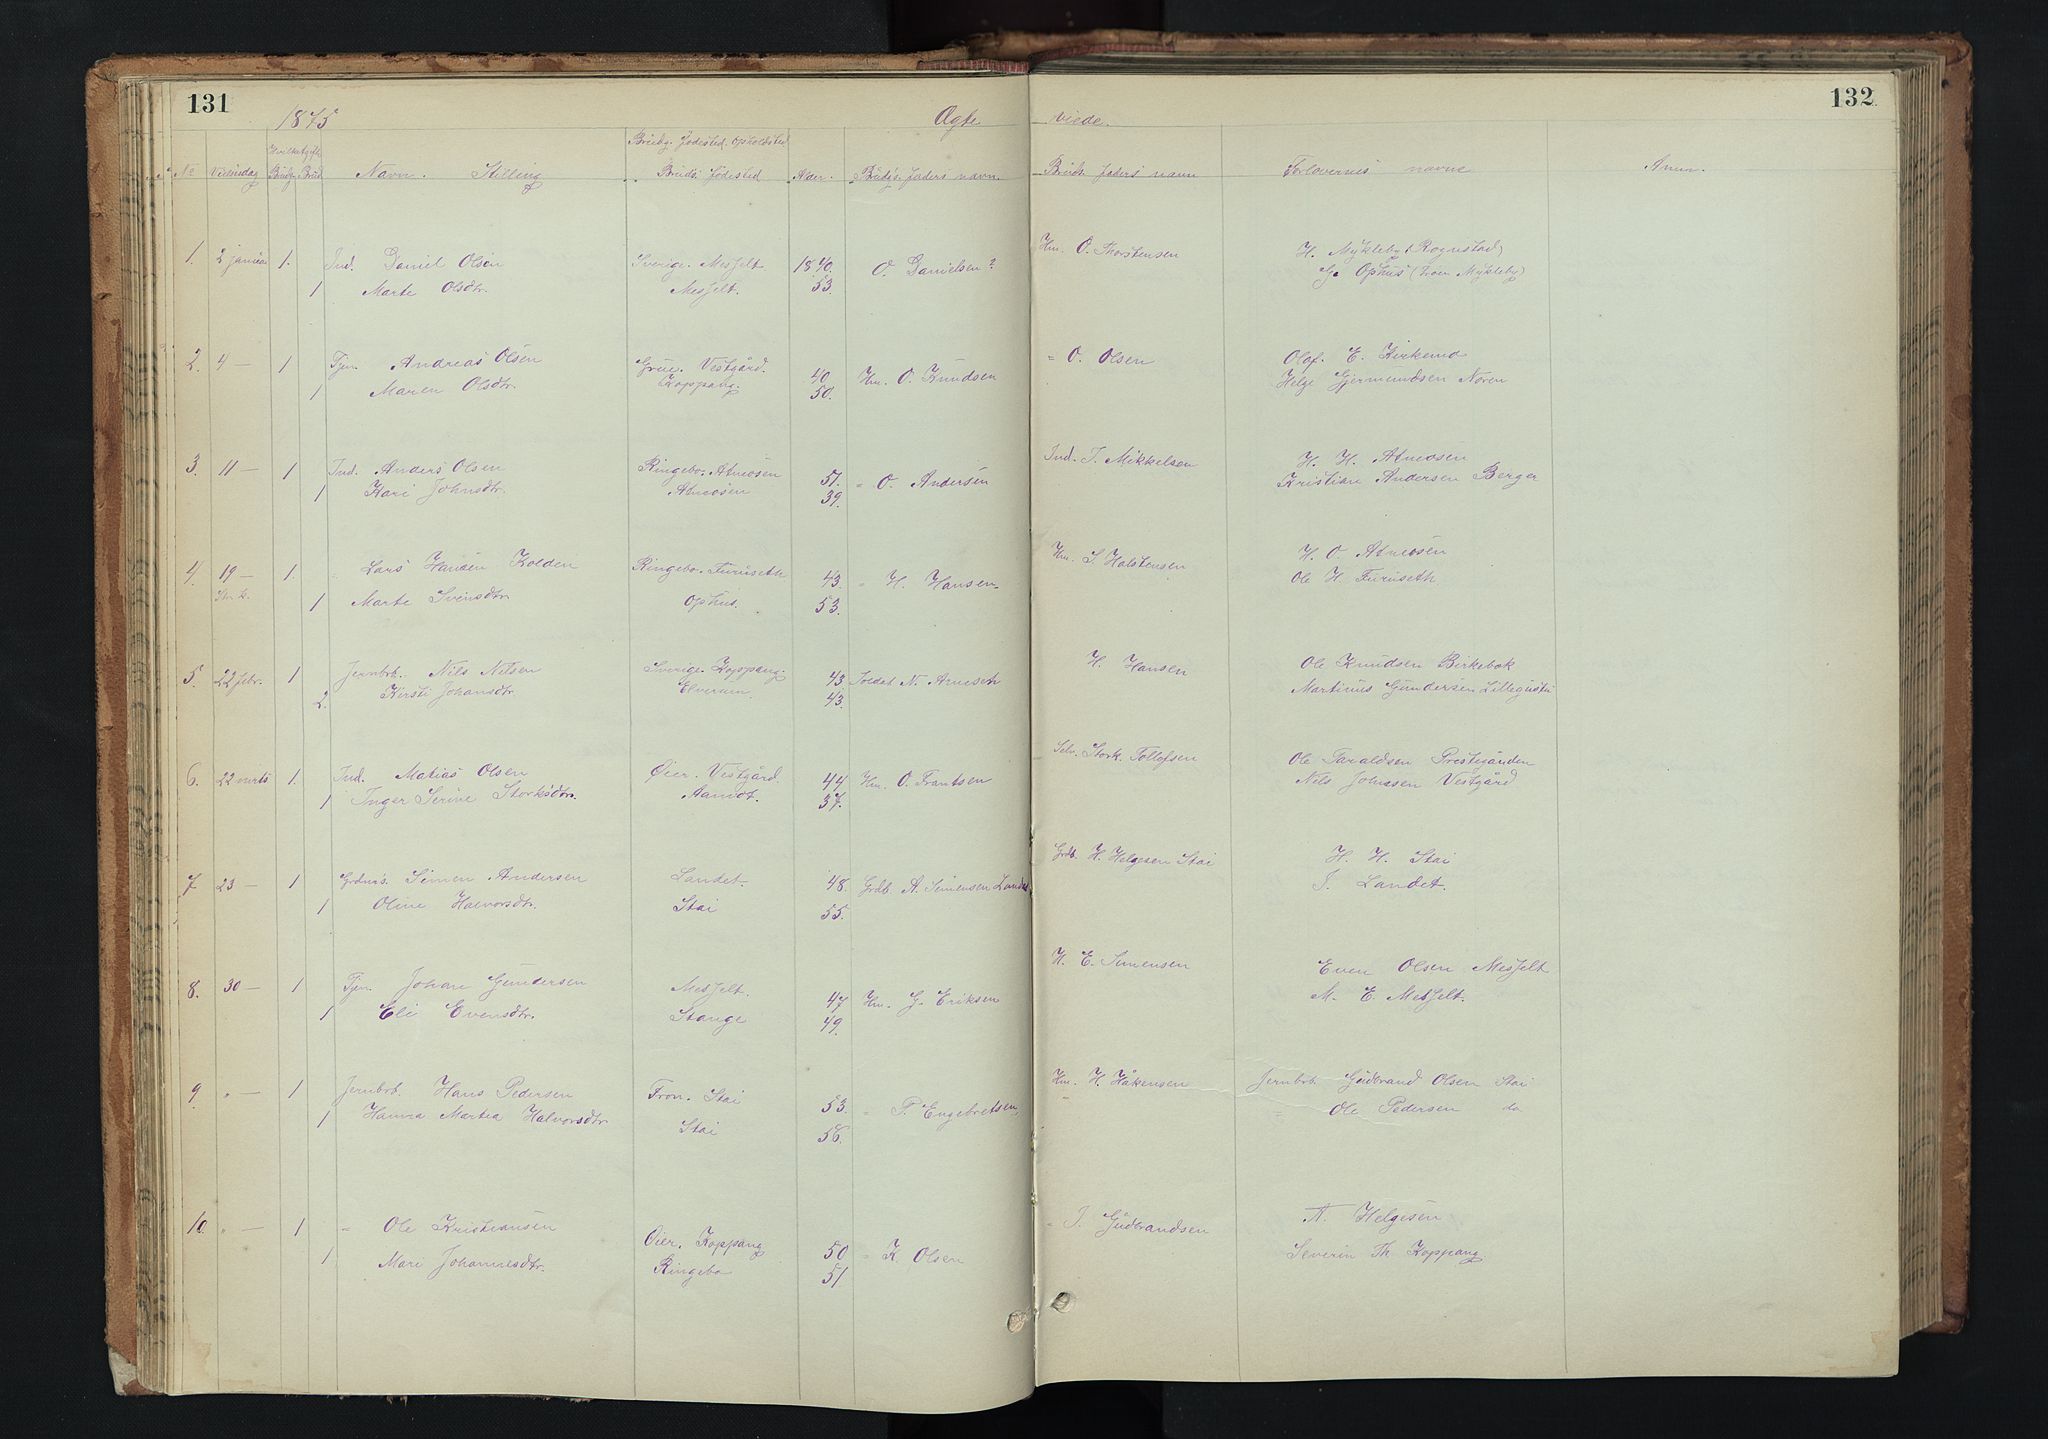 131
132
1875
Ægte
viede.
Brudg. fødested. opholdsted
No Vielsesdag Brudg. Brud Navn. Stilling Bruds fødested Alder. Brudg. faders navn. Bruds faders navn Forlovernes navne Anm.
1. 2 januar 1. Ind. Daniel Olsen Sverige. Mesfelt 1840. O. Danielsen? Hm. O. Thorstensen H. Mykleby (Rognstad)
1 Marte Olsdtr. Mesfelt. 53. G. Ophus (Moen Mykleby)
2. 4 — 1 Tjen. Andreas Olsen Grue. Vestgård. 40 Hm. O. Knudsen " O. Olsen Olaf. E. Kirkemo
1 Maren Olsdtr. Koppang. 50. Helge Gjermundsen Noren
3. 11 — 1 Ind. Anders Olsen Ringebo. Atneosen 51. " O. Andersen Ind. J. Mikkelsen H. H. Atneosen
1 Kari Johnsdtr. Atneosen 39. Kristian Andersen Berger
4. 19 — 1. Lars Hansen Kolden Ringebo. Furuseth 43. " H. Hansen Hm. S. Halstensen H. O. Atneosen
1 Marte Svensdtr. Ophus. 53. Ole H. Furuseth
5. 22 febr. 1 Jernbrb. Nils Nilsen Sverige. Koppang. 43 Soldat N. Arneseth H. Hansen Ole Knudsen Birkebak
2. Kirsti Johansdtr. Elverum. 43. Martinus Gundersen
6. 22 marts 1. Ind. Matias Olsen Øier. Vestgård 44 Hm. O. Frantsen Selv. Stork. Tollefsen Ole Taraldsen Prestgarden
1 Inger Serine Storksdtr. Aamot. 37. Nils Johnssen Vestgård
7 23 — 1 Grdms. Simen Andersen Landet. 48. Grdb. A. Simensen Landet Grdb. H. Helgesen Stai H. H. Stai
1 Oline Halvorsdtr. Stai 55. J. Landet.
8. 30 — 1 Tjen. Johan Gundersen Mesfelt. 47 Hm. G. Eriksen H. E. Simensen Even Olsen Mesfelt
1 Eli Evensdtr. Stange 49. M. E. Mesfelt.
9 " — 1 Jernbrb. Hans Pedersen Fron. Stai 53. " P. Engebretsen. Hm. H. Håkensen Jernbrb. Gudbrand Olsen Stai
1 Hanna Martea Halvorsdtr Stai 56. " Ole Pedersen do
10. " — 1 " Ole Kristiansen Øier. Koppang 50 " K. Olsen " J. Gudbrandsen A. Helgesen
1 Mari Johannesdtr. Ringebo 51 Severin Th. Koppang.